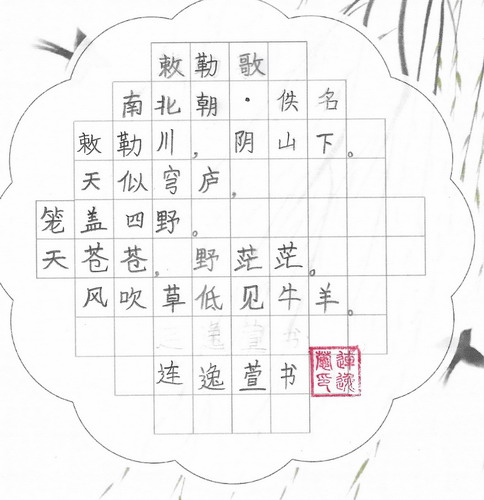 敕勒歌
南北朝·佚名
敕勒川，阴山下。
天似穹庐，
笼盖四野。
天苍苍，野茫茫。
风吹草低见牛羊。
连逸萱书
連逸萱印